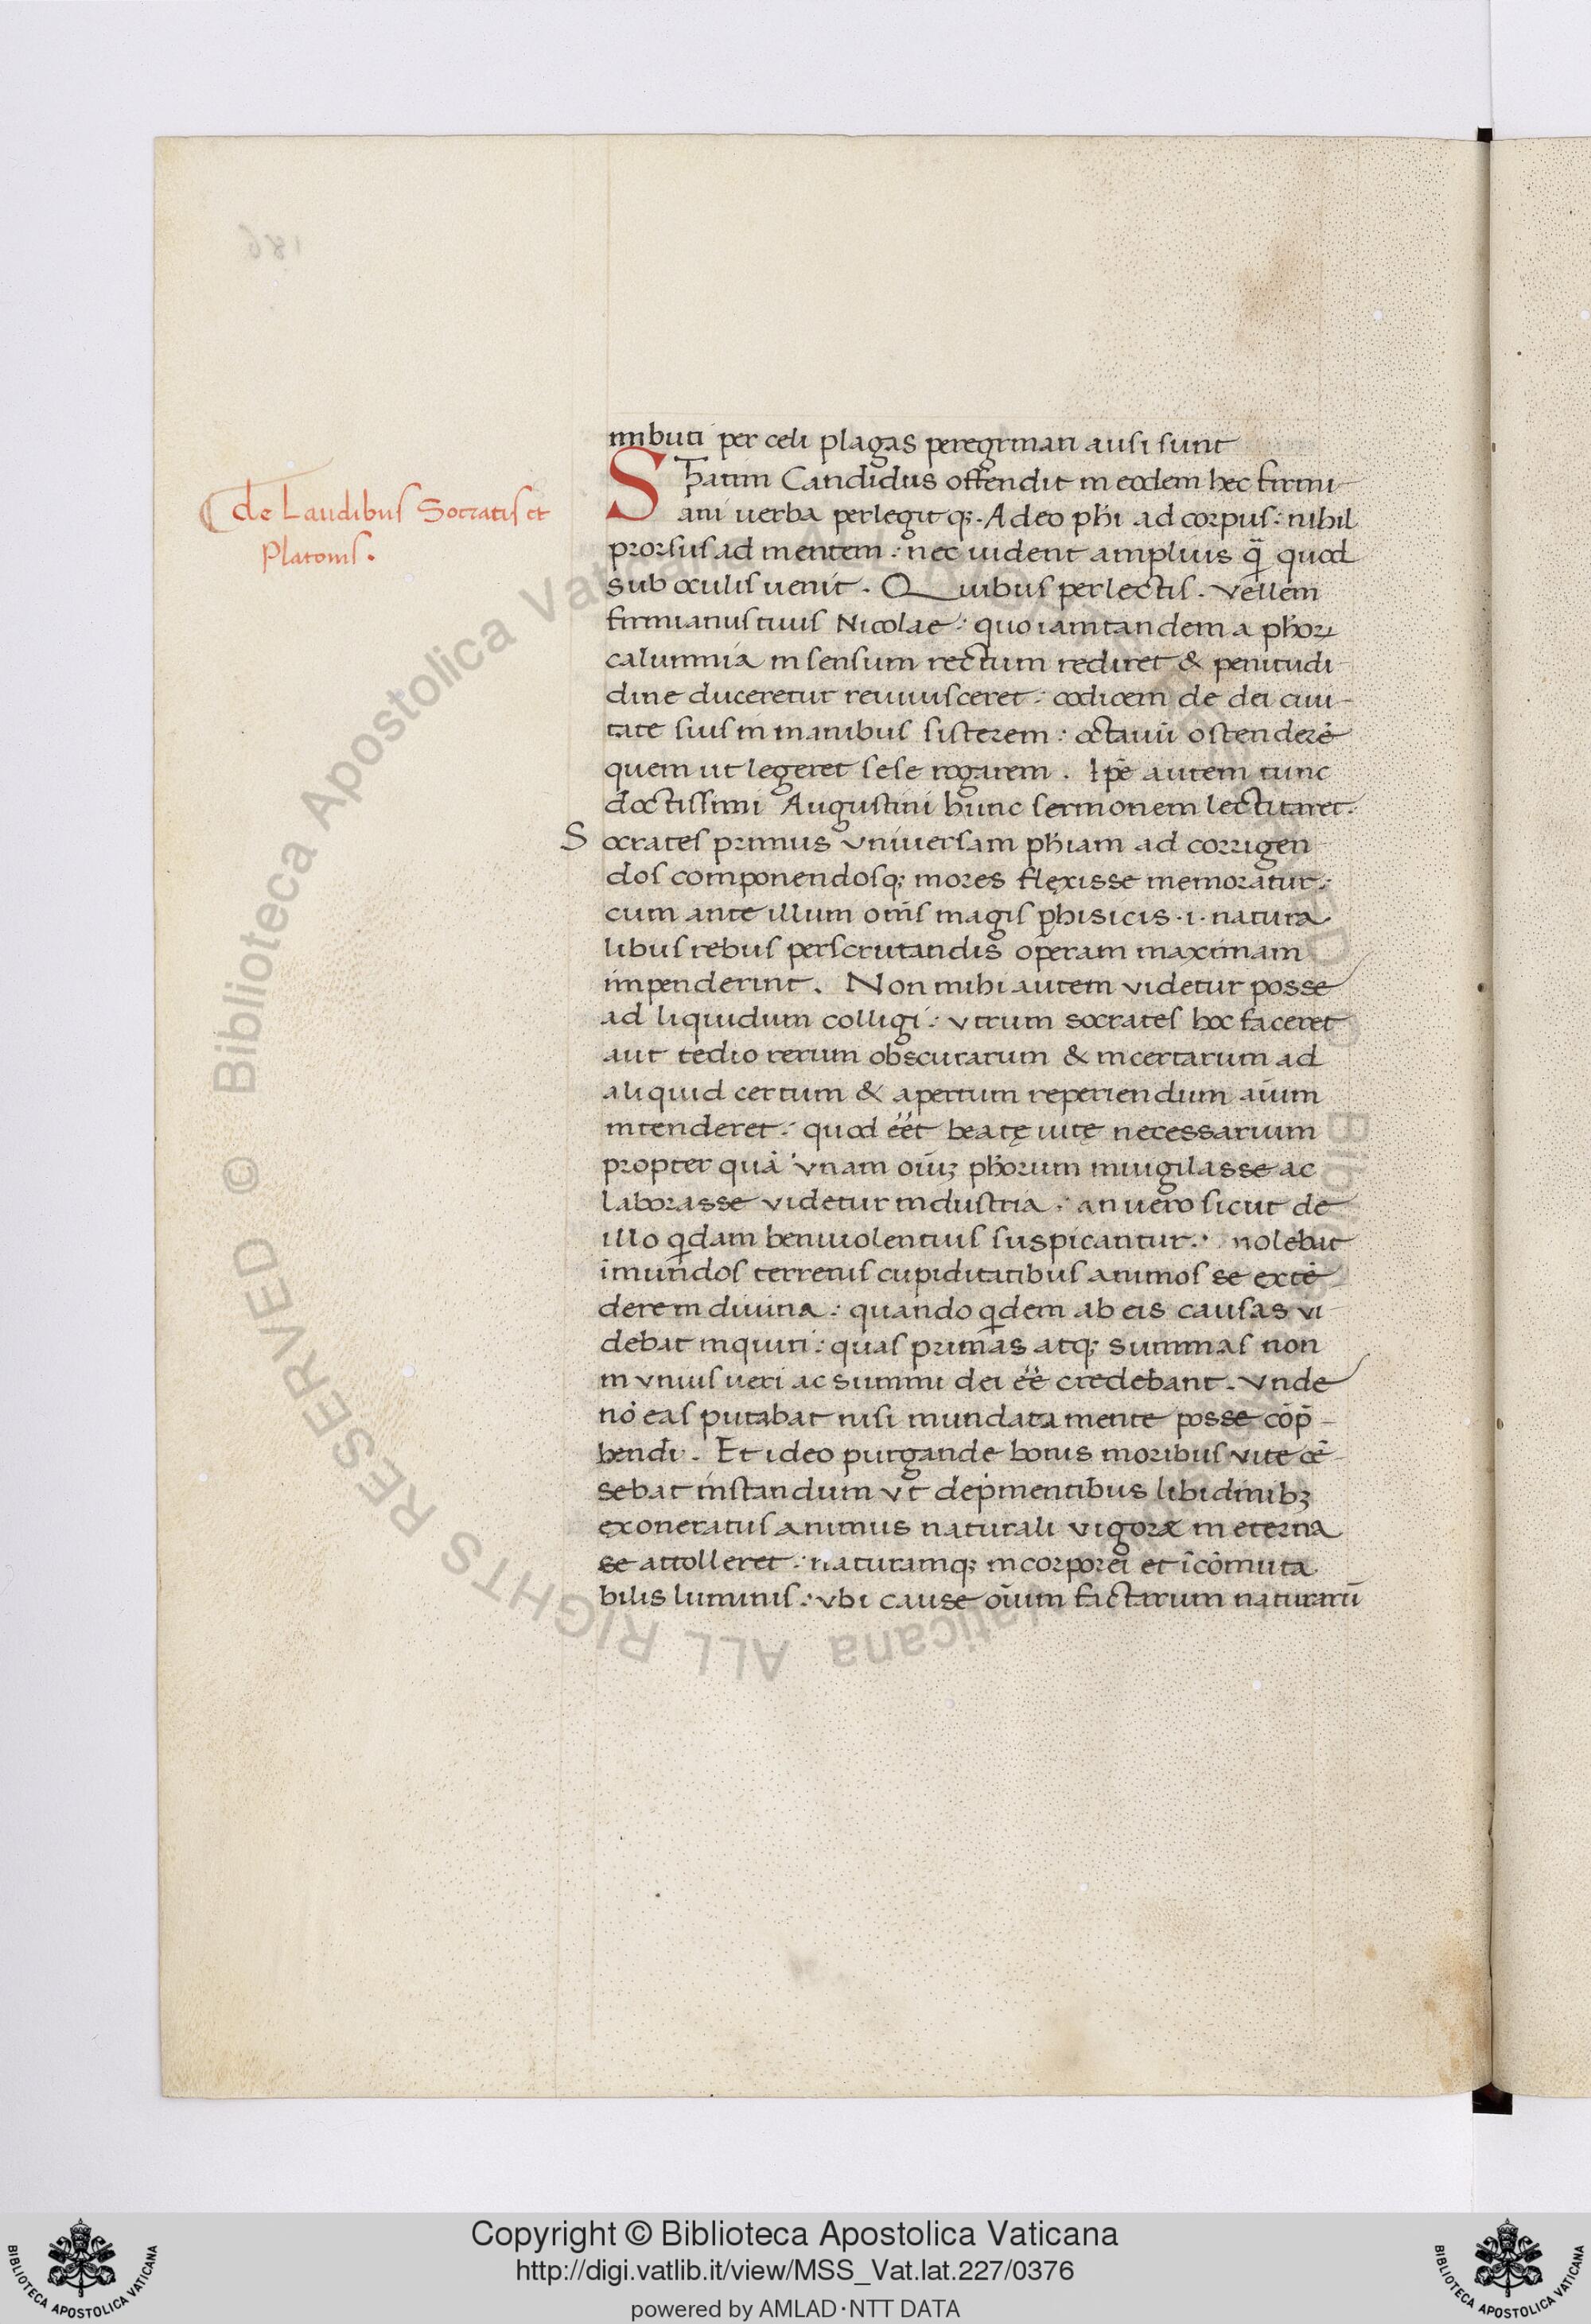 186
nnbuti per celi plagas peregrinari ausi sunt
de Laudibus Socratis et
Platonis.
Statim Candidus offendit in eodem hec firmi-
ani uerba perlegitq;. Adeo phi ad corpus: nihil
prorsus ad mentem: nec uident amplius q̃ quod
sub oculis uenit. Quibus perlectis. Vellem
firmianus tuus Nicolae: quo iam tandem a phoꝝ
calumnia in sensum rectum rediret & penitudi-
dine duceretur reuiuisceret: codicem de dei ciui-
tate suis in manibus sisterem: octauū ostenderē
quem ut legeret sese rogarem. Ipē autem tunc
doctissimi Augustini hunc sermonem lectitaret.
Socrates primus vniuersam phiam ad corrigen
dos componendosq; mores flęxisse memoratur:
cum ante illum om̄s magis phisicis .i. natura
libus rebus perscrutandis operam maximam
impenderint. Non mihi autem videtur posse
ad liquidum colligi: vtrum socrates hoc faceret
aut tedio rerum obscurarum & incertarum ad
aliquid certum & apertum reperiendum aīum
intenderet: quod ēēt beatę uitę necessarium
propter quā vnam oīuꝫ phorum inuigilasse ac
laborasse videtur industria: an uero sicut de
illo qdam beniuolentius suspicantur: nolebat
īmundos terrenis cupiditatibus animos se extē
dere in diuina: quando qdem ab eis causas vi-
debat inquiri: quas primas atq; summas non
in vnius ueri ac summi dei ēē credebant. Vnde
nō eas putabat nisi mundata mente posse cōp̄-
hendi. Et ideo purgande bonis moribus vite cē-
sebat instandum vt depmentibus libidinibꝫ
exoneratus animus naturali vigore in eterna
se attolleret: naturamq; incorporei et īcōmuta
bilis luminis: vbi cause oīum factarum naturarū
Biblioteca Apostolica Vaticana ALL RIGHTS RESERVED ©
Copyright © Biblioteca Apostolica Vaticana
http://digi.vatlib.it/view/MSS_Vat.lat.227/0376
powered by AMLAD·NTT DATA
BIBLIOTECA APOSTOLICA VATICANA
BIBLIOTECA APOSTOLICA VATICANA